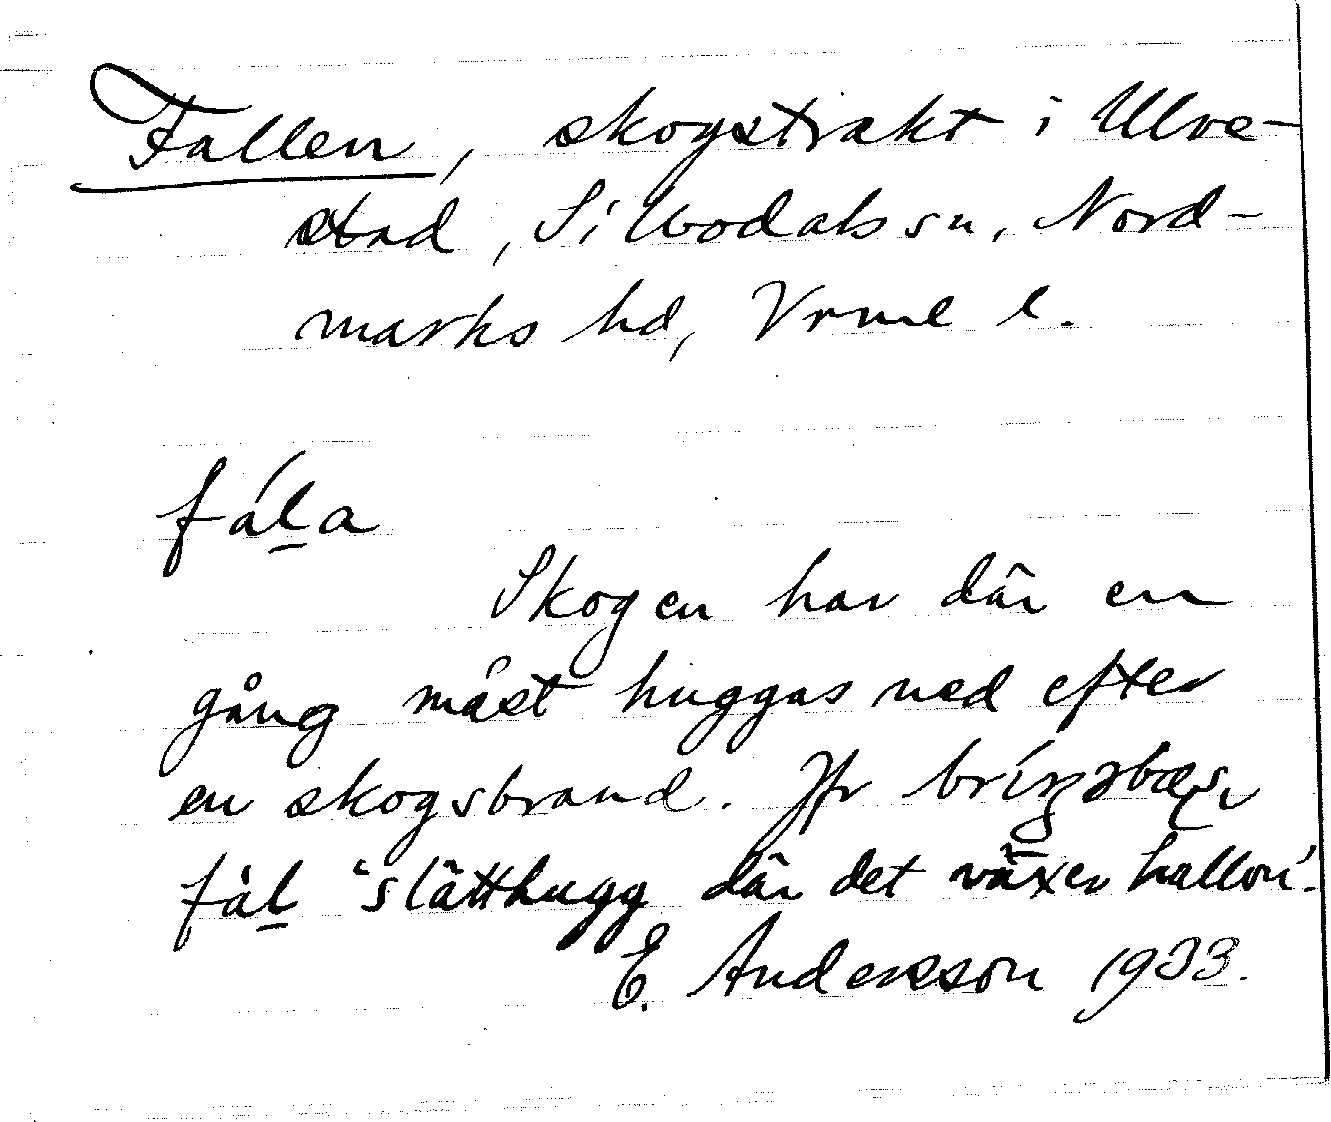 Fallen, skogstrakt i Ulve-
stad, Silbodals sn, Nord-
marks hd, Vrml l.
fáḻa
Skogen har där en
gång måst huggas ned efter
en skogsbrand. Jfr
fàḻ 'slätthugg där det växer hallon'.
E. Andersson 1933.